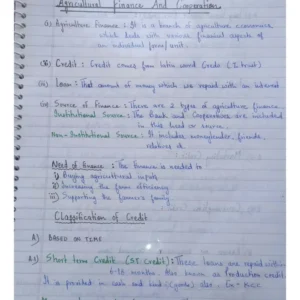 Agricultural Finance And Cooperation
(i) Agriculture Finance : It is a branch of agriculture economics
which deals with various financial aspects of
an individual farm unit.
(ii) Credit : Credit comes from latin word Credo (I trust)
(iii) Loan : That amount of money which are repaid with an interest
(iv) Source of Finance : There are 2 types of agriculture finance
Institutional Source : The Bank and Cooperatives are included
in this kind of source.
Non-Institutional Source : It includes moneylender, friends,
relatives etc.
Need of finance : The finance is needed to
i) Buying agricultural inputs
ii) Increasing the farm efficiency
iii) Supporting the farmer's family
Classification of Credit
A) BASED ON TIME
Short term Credit (ST. Credit) : These loans are repaid within
6-18 months. Also known as Production credit.
It is provided in cash and kind